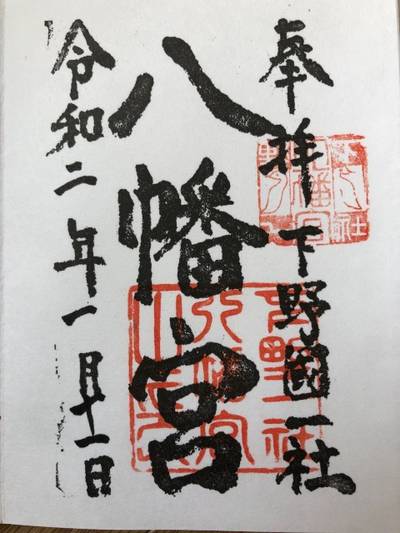 奉拝 下野國一社
八幡宮
令和二年一月十一日